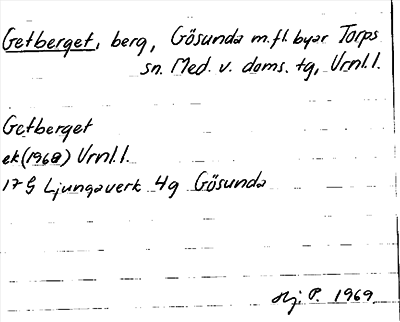 Getberget, berg, Gösunda m.fl. byar Torps
sn. Med. v. doms. tg, Vrnl.l.
Getberget
ek (1968) Vrnl.l.
17 G Ljungaverk 4g Gösunda
Hj. P. 1969